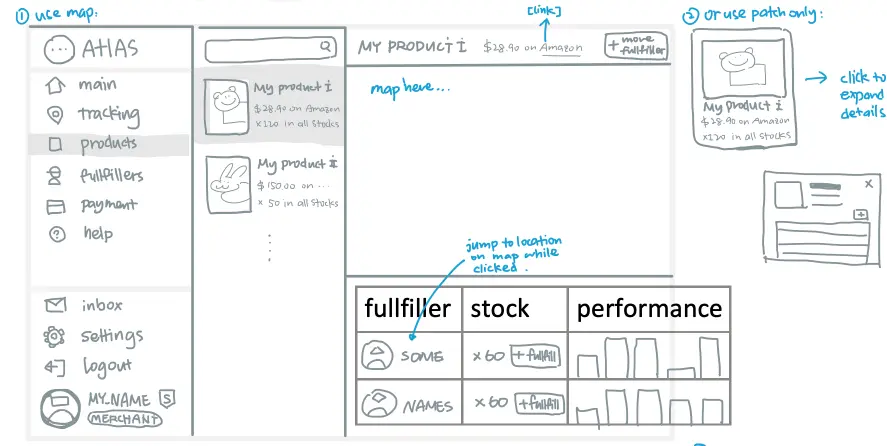 ① use map:
ATLAS
main
tracking
products
fullfillers
payment
help
inbox
settings
logout
MY_NAME S
MERCHANT
My product i
$28.90 on Amazon
x120 in all stocks
My product i
$150.00 on ...
x 50 in all stocks
[link]
MY PRODUCT i $28.90 on Amazon
+ more fullfiller
map here...
jump to location
on map while
clicked.
fullfiller stock performance
SOME x60 +fullfill
NAMES x60 +fullfill
② or use patch only:
My product i
$28.90 on Amazon
x120 in all stocks
click to
expand
details
x
+